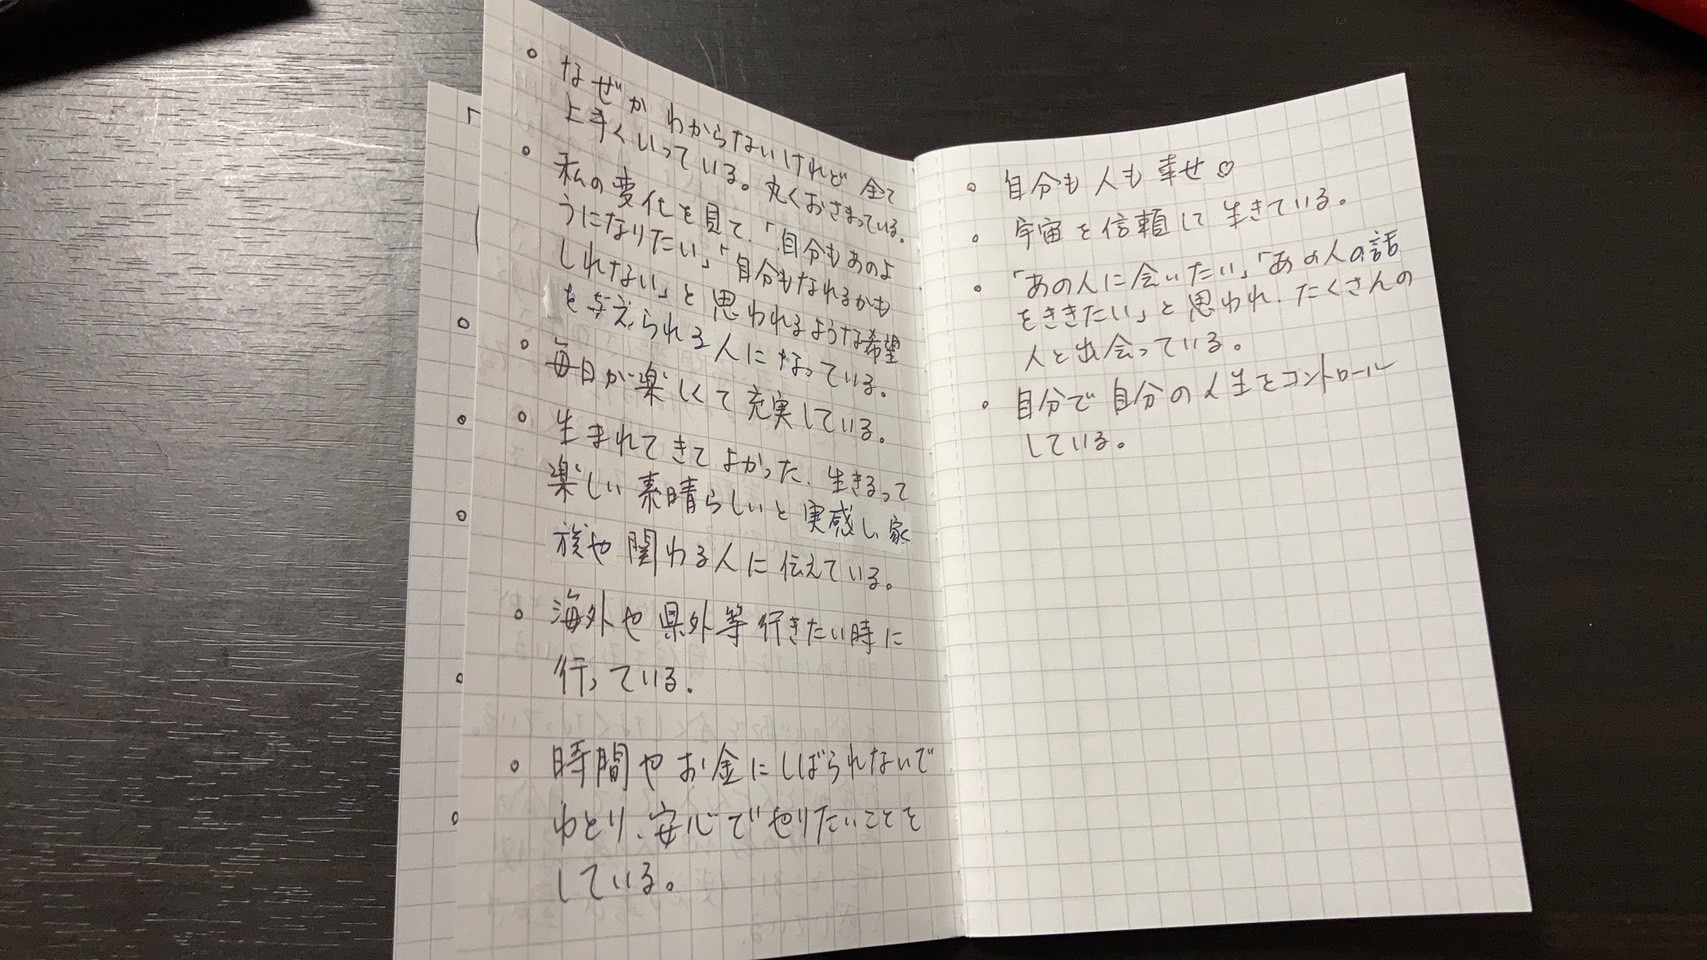 。なぜかわからないけれど全て
上手くいっている。丸くおさまっている。
。私の変化を見て、「自分もあのよ
うになりたい」「自分もなれるかも
しれない」と思われるような希望
を与えられる人になっている。
。毎日が楽しくて充実している。
。生まれてきてよかった、生きるって
楽しい素晴らしいと実感し家
族や関わる人に伝えている。
。海外や県外等行きたい時に
行っている。
。時間やお金にしばられないで
ゆとり、安心でやりたいことを
している。
。自分も人も幸せ♡
。宇宙を信頼して生きている。
。「あの人に会いたい」「あの人の話
をききたい」と思われ、たくさんの
人と出会っている。
。自分で自分の人生をコントロール
している。